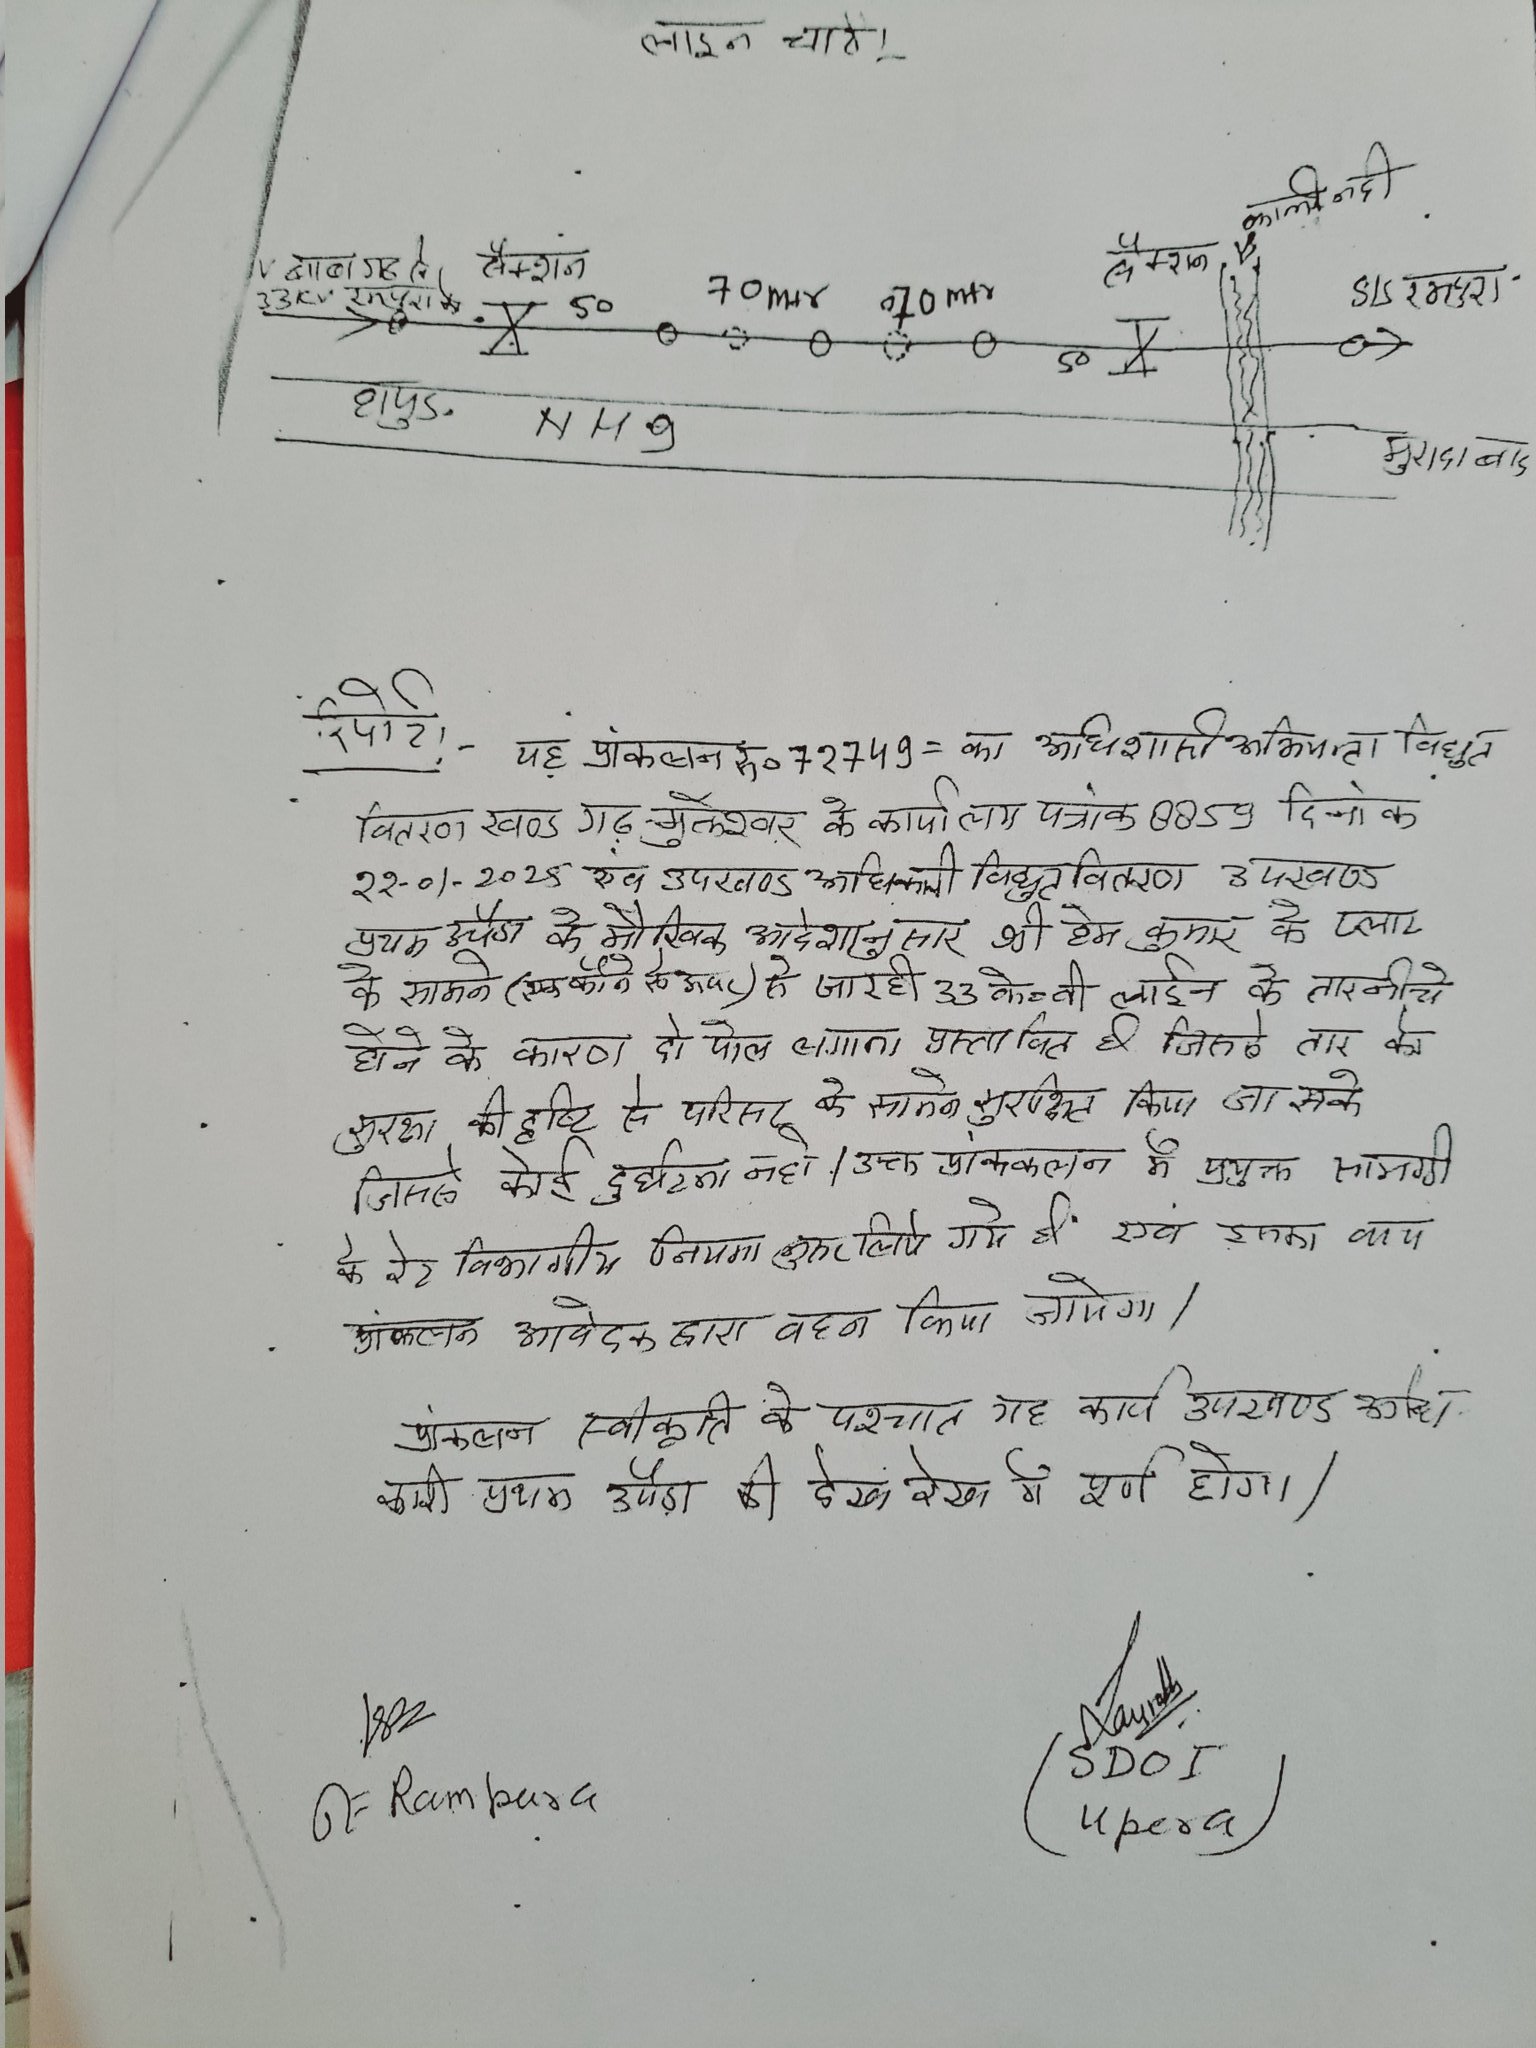 लाइन चार्ट!
काली नदी
सैक्शन
सैक्शन
33KV रामपुरा के
50
70 mtr
70 mtr
50
S/S रामपुरा
हापुड.
NH 9
मुरादाबाद
रिपोर्ट!- यह प्रांकलन रू० 72749= का अधिशासी अभियन्ता विद्युत
वितरण खण्ड गढ़मुक्तेश्वर के कार्यालय पत्रांक 8859 दिनांक
22-01-2025 एंव उपखण्ड अधिकारी विद्युत वितरण उपखण्ड
प्रथम उपैडा के मौखिक आदेशानुसार श्री हेम कुमार के प्लाट
के सामने से जा रही 33 के०वी लाईन के तार नीचे
होने के कारण दो पोल लगाना प्रस्तावित है जिससे तार को
सुरक्षा की दृष्टि से परिसर के सामने सुरक्षित किया जा सके
जिससे कोई दुर्घटना न हो। उक्त प्रांककलन में प्रयुक्त सामग्री
के रेट विभागीय नियमानुसार लिये गये हैं एवं इसका व्यय
प्रांकलन आवेदक द्वारा वहन किया जायेगा।
प्रांकलन स्वीकृति के पश्चात यह कार्य उपखण्ड अधि
कारी प्रथम उपैडा की देख रेख में पूर्ण होगा।
JE Rampura
(SDO I
Upera)